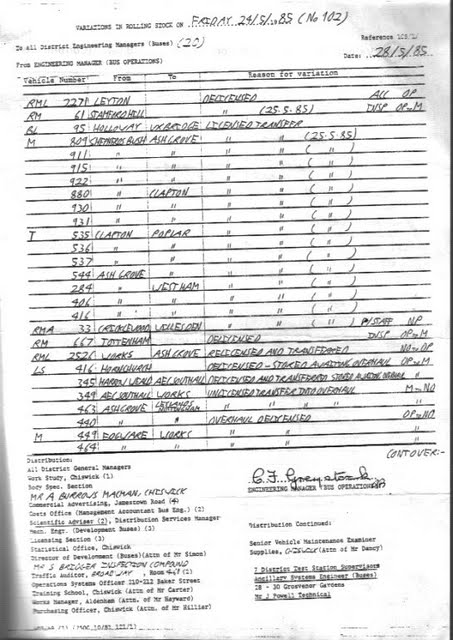 VARIATIONS IN ROLLING STOCK ON FRIDAY 24/5/1985 (No 102)
Reference 105/1/
To All District Engineering Managers (Buses) (20)
Date: 28/5/85
From ENGINEERING MANAGER (BUS OPERATIONS)
Vehicle Number From To Reason for variation
RML 2271 LEYTON DELICENSED ALL OP
RM 61 STAMFORD HILL " (25.5.85) INSP OP=M
BL 95 HOLLOWAY UXBRIDGE LICENSED TRANSFER
M 809 SHEPHERDS BUSH ASH GROVE " " (25.5.85)
911 " " " " ( " )
915 " " " " ( " )
922 " " " " ( " )
880 " CLAPTON " " ( " )
930 " " " " ( " )
931 " " " " ( " )
T 535 CLAPTON POPLAR " " ( " )
536 " " " " ( " )
537 " " " " ( " )
544 ASH GROVE " " " ( " )
284 " WESTHAM " " ( " )
406 " " " " ( " )
416 " " " " ( " )
RMA 33 CRICKLEWOOD WILLESDEN " " ( " ) P/STAFF NP
RM 667 TOTTENHAM DELICENSED INSP OP=M
RML 2526 WORKS ASH GROVE RELICENSED AND TRANSFERRED NO=OP
LS 416 HORNCHURCH DELICENSED - STORED AWAITING OVERHAUL OP=M
345 HARROW WEALD AEC SOUTHALL DELICENSED AND TRANSFERRED STORED AWAITING OVERHAUL "
349 AEC SOUTHALL WORKS UNLICENSED TRANSFER INTO OVERHAUL M=NO
463 ASH GROVE LEYLANDS NOTTINGHAM " "
440 " " OVERHAUL DELICENSED OP=NO
M 449 EDGWARE WORKS " " "
464 " " " " "
CONT OVER:-
Distribution:
All District General Managers
Work Study, Chiswick (1)
Body Spec. Section
MR A BURROWS MACMAN, CHISWICK
Commercial Advertising, Jamestown Road (4)
Costs Office (Management Accountant Bus Eng.) (2)
Scientific Adviser (2), Distribution Services Manager
Mech. Engr. (Development Buses) (3)
Licensing Section (3)
Statistical Office, Chiswick
Director of Development (Buses)(Attn of Mr Simon)
INSPECTION COMPOUND
Traffic Auditor, BROADWAY, Room
Operations Systems Officer 210-212 Baker Street
Training School, Chiswick (Attn of Mr Carter)
Works Manager, Aldenham (Attn of Mr Hayward)
Purchasing Officer, Chiswick (Attn of Mr Hillier)
ENGINEERING MANAGER (BUS OPERATIONS)
Distribution Continued:
Senior Vehicle Maintenance Examiner
Supplies, CHISWICK (Attn of Mr Dancy)
7 District Test Station Supervisors
Ancillary Systems Engineer (Buses)
28 - 30 Grosvenor Gardens
Mr J Powell Technical